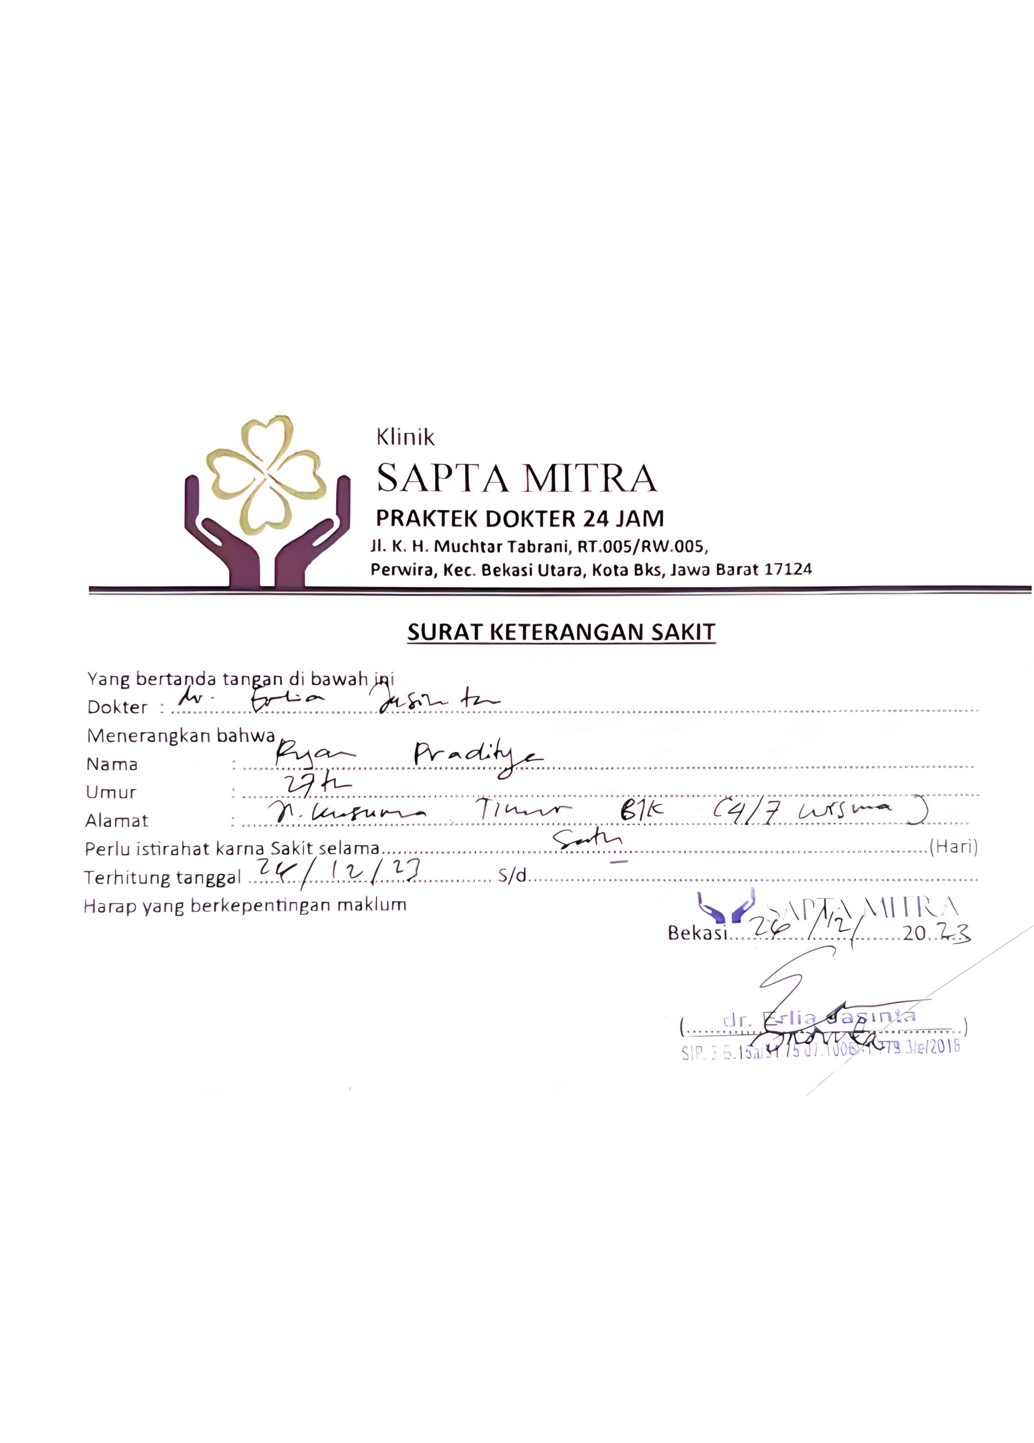 Klinik
SAPTA MITRA
PRAKTEK DOKTER 24 JAM
Jl. K. H. Muchtar Tabrani, RT.005/RW.005,
Perwira, Kec. Bekasi Utara, Kota Bks, Jawa Barat 17124
SURAT KETERANGAN SAKIT
Yang bertanda tangan di bawah ini
Dokter : dr. Erlia Jasinta
Menerangkan bahwa
Nama : Ryan Praditya
Umur : 27 th
Alamat : Kusuma Timur B1K (4/7 Wisma)
Perlu istirahat karna Sakit selama Satu (Hari)
Terhitung tanggal 24/12/23 S/d
Harap yang berkepentingan maklum
SAPTA MITRA
Bekasi 24/12/2023
(dr. Erlia Jasinta)
SIP.